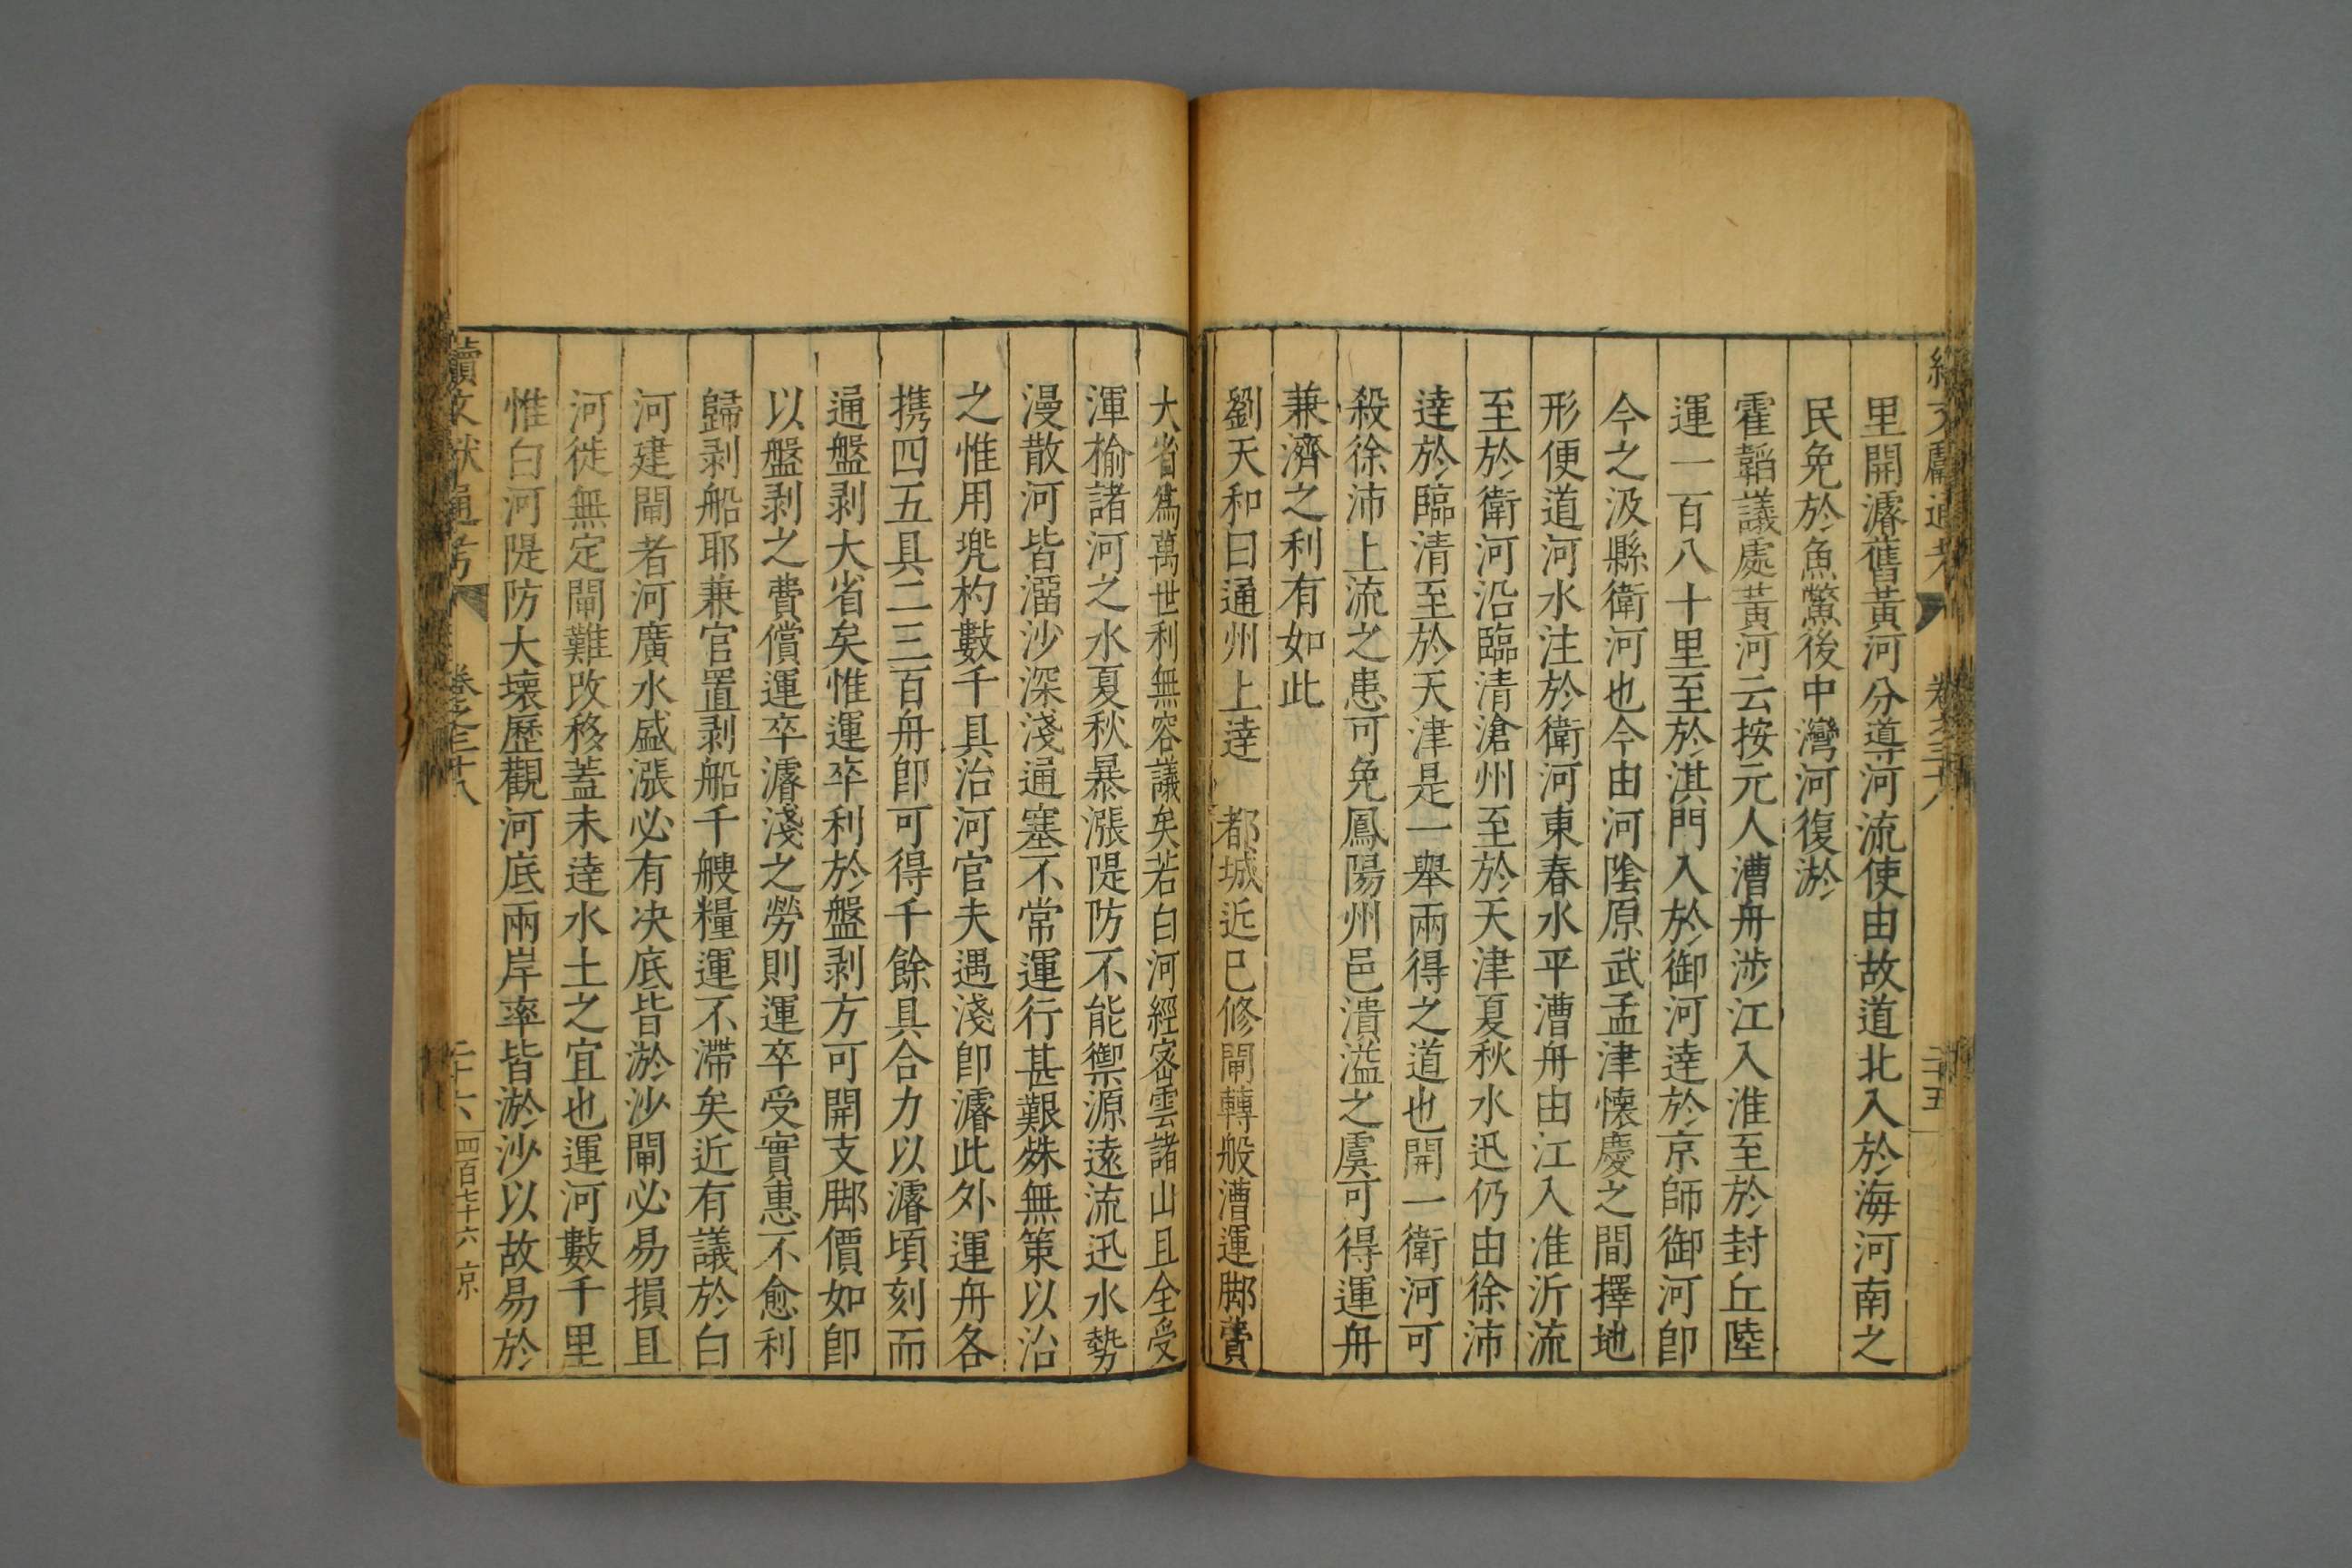 續文獻通考 卷之三十八 二十五
里開濬舊黃河分導河流使由故道北入於海河南之
民免於魚鱉後中灣河復淤
霍韜議處黃河云按元人漕舟涉江入淮至於封丘陸
運一百八十里至於淇門入於御河達於京師御河卽
今之汲縣衛河也今由河陰原武孟津懷慶之間擇地
形便道河水注於衛河東春水平漕舟由江入淮泝流
至於衛河沿臨清滄州至於天津夏秋水迅仍由徐沛
達於臨清至於天津是一舉兩得之道也開一衛河可
殺徐沛上流之患可免鳳陽州邑潰溢之虞可得運舟
兼濟之利有如此
劉天和曰通州上達 都城近已修閘轉般漕運脚費
大省爲萬世利無容議矣若白河經密雲諸山且全受
渾榆諸河之水夏秋暴漲隄防不能禦源遠流迅水勢
漫散河皆溜沙深淺通塞不常運行甚艱殊無策以治
之惟用兠杓數千具治河官夫遇淺卽濬此外運舟各
携四五具二三百舟卽可得千餘具合力以濬頃刻而
通盤剥大省矣惟運卒利於盤剥方可開支脚價如卽
以盤剥之費償運卒濬淺之勞則運卒受實惠不愈利
歸剥船耶兼官置剥船千艘糧運不滯矣近有議於白
河建閘者河廣水盛漲必有决底皆淤沙閘必易損且
河徙無定閘難改移蓋未達水土之宜也運河數千里
惟白河隄防大壞歷觀河底兩岸率皆淤沙以故易於
續文獻通考 卷之三十八 二十六 四百七十六 京